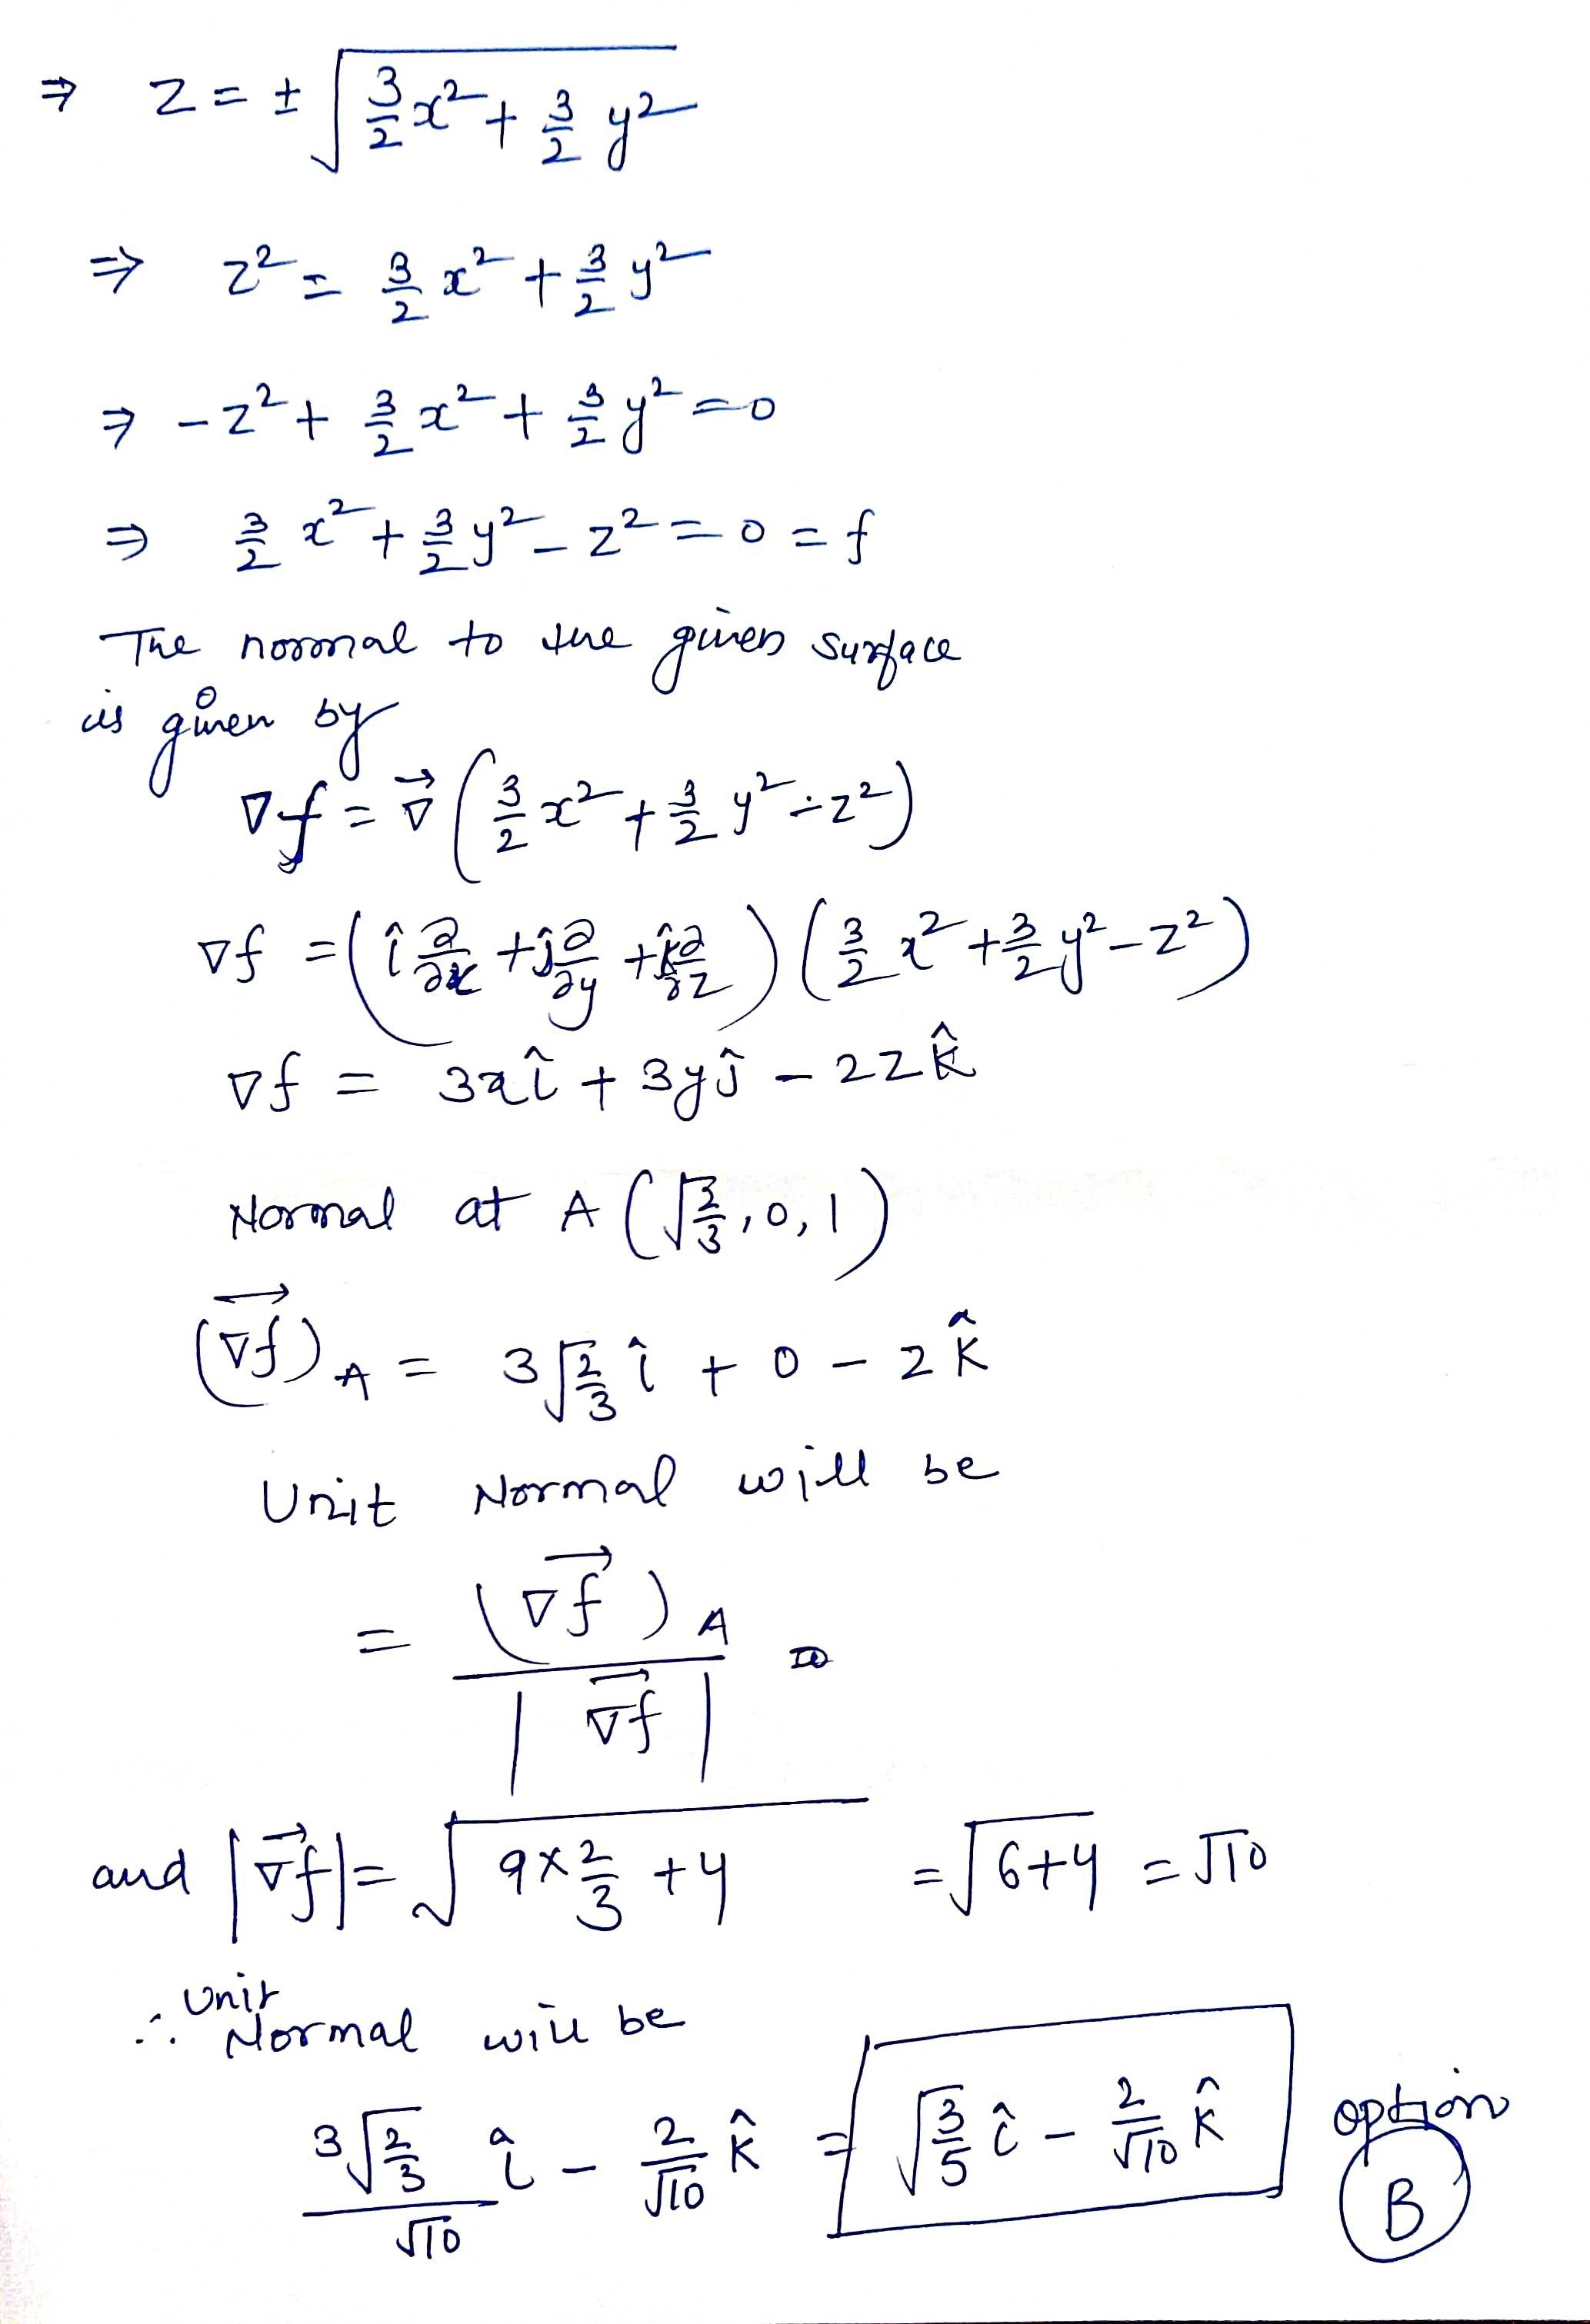 ⇒ z = ± √(3/2 x² + 3/2 y²)
⇒ z² = 3/2 x² + 3/2 y²
⇒ - z² + 3/2 x² + 3/2 y² = 0
⇒ 3/2 x² + 3/2 y² - z² = 0 = f
The normal to the given surface
is given by
∇f = ∇⃗ (3/2 x² + 3/2 y² - z²)
∇f = (î ∂/∂x + ĵ ∂/∂y + k̂ ∂/∂z) (3/2 x² + 3/2 y² - z²)
∇f = 3xî + 3yĵ - 2zk̂
Normal at A (√(2/3), 0, 1)
(∇f)⃗ A = 3√(2/3) î + 0 - 2 k̂
Unit Normal will be
= (∇f⃗)A / |∇f⃗|
and |∇f⃗| = √(9×2/3 + 4) = √(6+4) = √10
∴ Unit Normal will be
3√(2/3)/√10 î - 2/√10 k̂ = √(3/5) î - 2/√10 k̂ option B